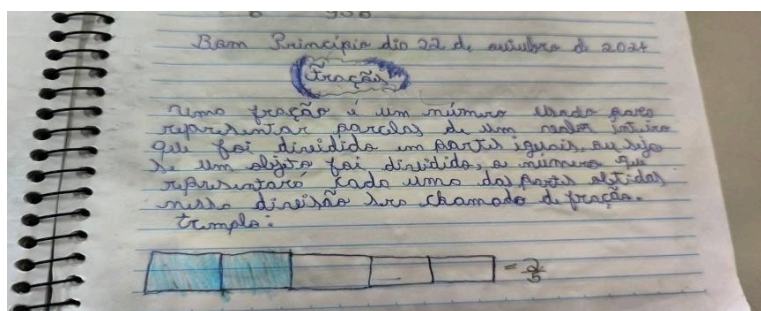 Bom Princípio dia 22 de outubro de 2024
Fração
Uma fração é um número usado para
representar parcelas de um valor inteiro
que foi dividido em partes iguais, ou seja
se um objeto foi dividido, o número que
representará cada uma das partes obtidas
nessa divisão sra chamado de fração.
Exemplo:
= 2/5